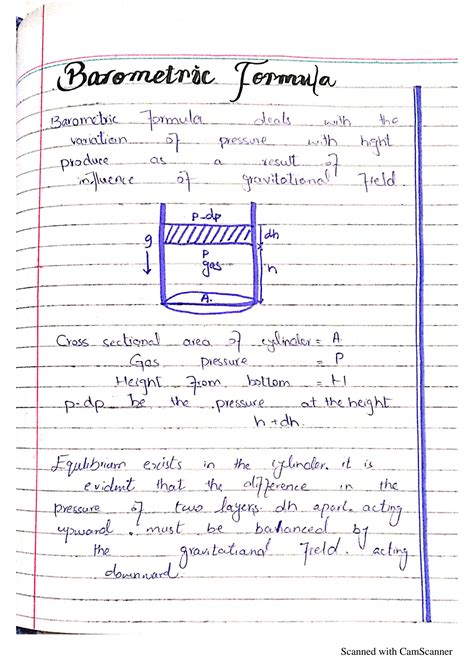 Barometric Formula
Barometric Formula deals with the
variation of pressure with hght
produce as a result of
influence of gravitational Field.
p-dp
g
dh
P
gas
h
A.
Cross sectional area of cylinder = A
Gas pressure = P
Height From bottom = H
p-dp be the pressure at the height
h + dh.
Equlibrium exists in the cylinder. it is
evident that the difference in the
pressure of two layers dh apart. acting
upward. must be balanced by
the gravitational Field. acting
downward.
Scanned with CamScanner